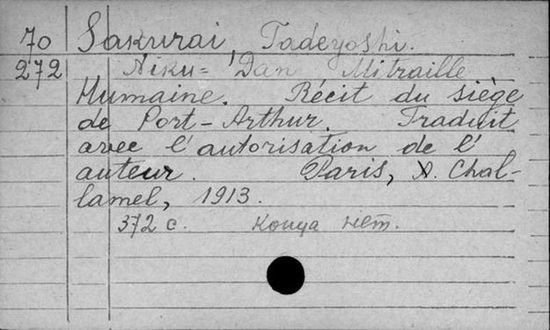 70 Sakurai, Tadeyoshi.
272 Niku-Dan Mitraille
Humaine. Récit du siège
de Port-Arthur. Traduit
avec l'autorisation de l'
auteur. Paris, A. Chal-
lamel, 1913.
372 c. Конца нет.